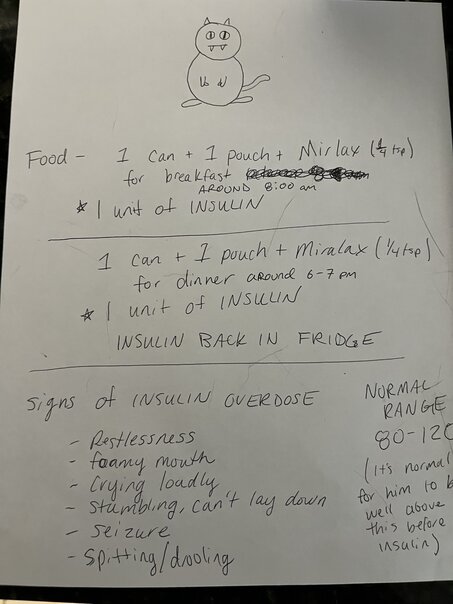 Food - 1 can + 1 pouch + Mirlax (1/4 tsp)
for breakfast
AROUND 8:00 am
* 1 unit of INSULIN
1 can + 1 pouch + Miralax (1/4 tsp)
for dinner around 6-7 pm
* 1 unit of INSULIN
INSULIN BACK IN FRIDGE
Signs of INSULIN OVERDOSE
- Restlessness
- foamy mouth
- Crying loudly
- Stumbling, can't lay down
- Seizure
- Spitting/drooling
NORMAL
RANGE
80-120
(it's normal
for him to b
well above
this before
insulin)